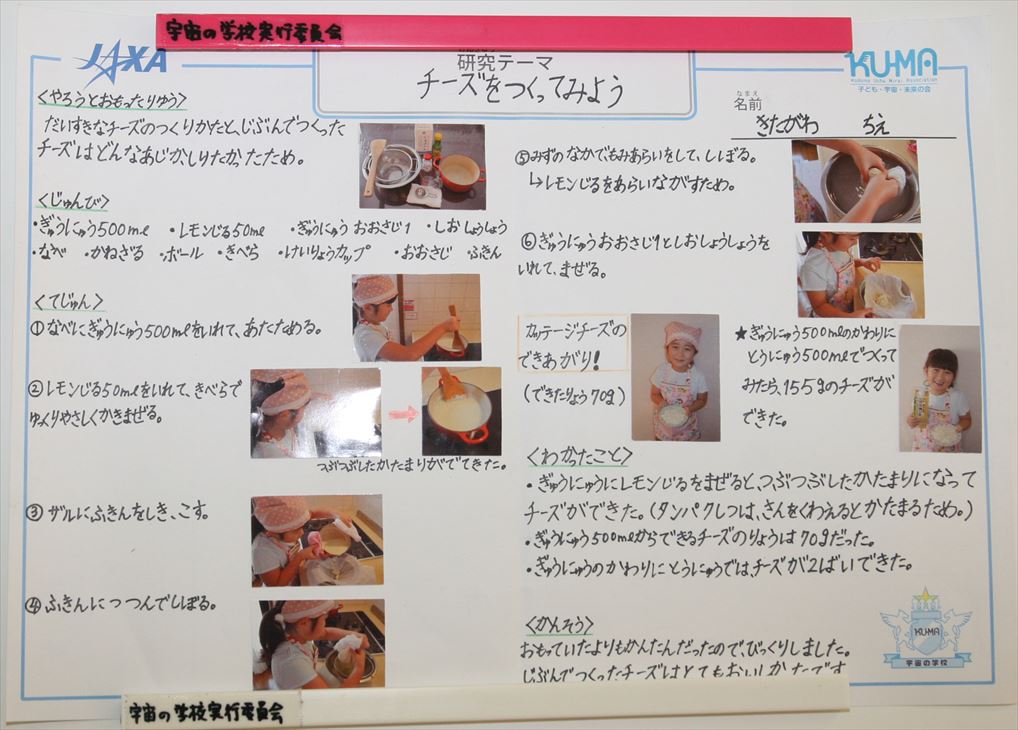 宇宙の学校実行委員会
JAXA
研究テーマ
チーズをつくってみよう
KU-MA
Kodomo Uchu Mirai Association
子ども・宇宙・未来の会
なまえ
名前
きたがわ ちえ
<やろうとおもったりゆう>
だいすきなチーズのつくりかたと、じぶんでつくった
チーズはどんなあじかしりたかったため。
<じゅんび>
・ぎゅうにゅう500ml ・レモンじる50ml ・ぎゅうにゅう おおさじ1 ・しおしょうしょう
・なべ ・かねざる ・ボール ・きべら ・けいりょうカップ ・おおさじ ふきん
<てじゅん>
①なべにぎゅうにゅう500mlをいれて、あたためる。
②レモンじる50mlをいれて、きべらで
ゆっくりやさしくかきまぜる。
つぶつぶしたかたまりがでてきた。
③ザルにふきんをしき、こす。
④ふきんにつつんでしぼる。
⑤みずのなかで、もみあらいをして、ししぼる。
↳レモンじるをあらいながすため。
⑥ぎゅうにゅうおおさじ1としおしょうしょうを
いれて、まぜる。
カッテージチーズの
できあがり!
(できたりょう70g)
★ぎゅうにゅう500mlのかわりに
とうにゅう500mlでつくって
みたら、155gのチーズが
できた。
<わかったこと>
・ぎゅうにゅうにレモンじるをまぜると、つぶつぶしたかたまりになって
チーズができた。(タンパクしつは、さんをくわえるとかたまるため。)
・ぎゅうにゅう500mlからできるチーズのりょうは70gだった。
・ぎゅうにゅうのかわりにとうにゅうでは、チーズが2ばいできた。
<かんそう>
おもっていたよりもかんたんだったので、びっくりしました。
じぶんでつくったチーズはとてもおいしかったです
KU-MA
宇宙の学校
宇宙の学校実行委員会